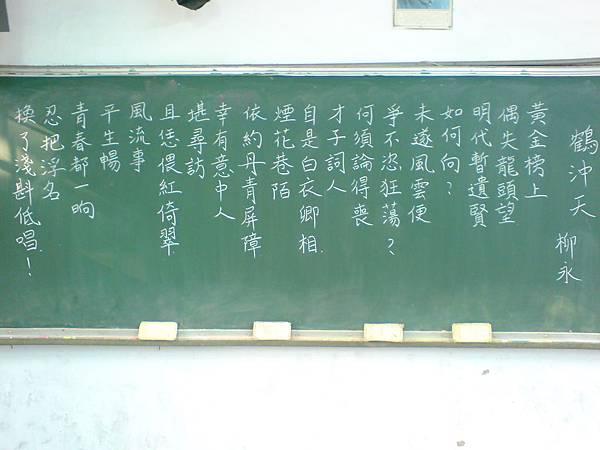 鶴沖天 柳永
黃金榜上
偶失龍頭望
明代暫遺賢
如何向?
未遂風雲便
爭不恣狂蕩?
何須論得喪
才子詞人
自是白衣卿相.
煙花巷陌
依約丹青屏障
幸有意中人
堪尋訪
且恁偎紅倚翠
風流事
平生暢
青春都一晌
忍把浮名
換了淺斟低唱.!